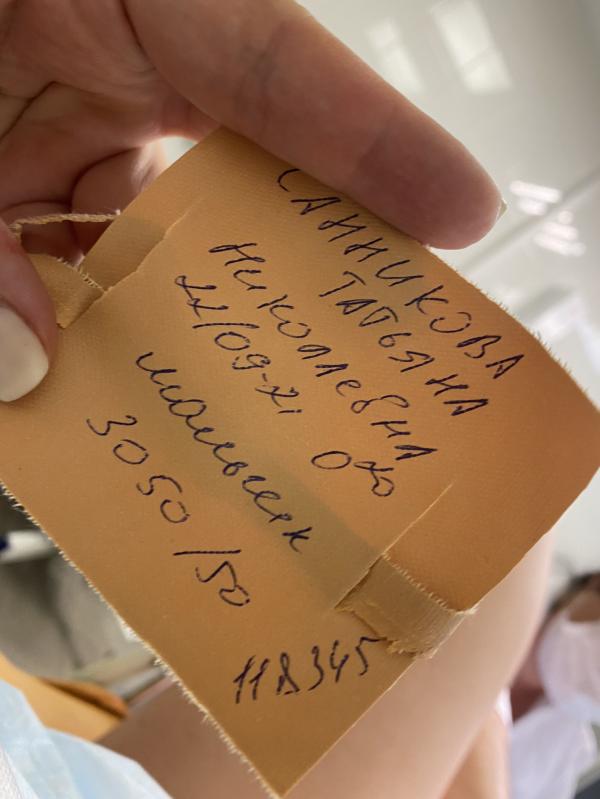 САННИКОВА
ТАТЬЯНА
НИКОЛАЕВНА
22/09-21 0²⁰
мальчик
3050/50
118345